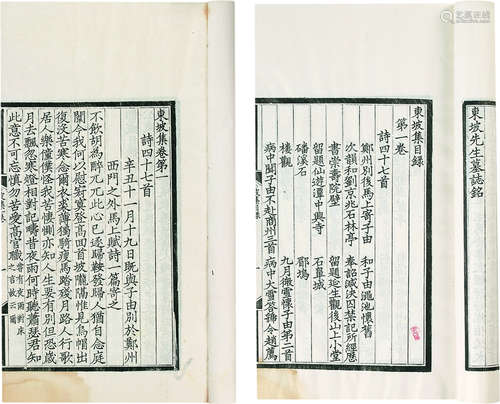 東坡先生墓誌銘
東坡集目録
第一卷
詩四十七首
鄭州别後馬上寄子由
和子由澠池懷舊
次韻和劉京兆石林亭
奉詔減決囚禁記所經歷
書崇壽院壁
留題延生觀後山上小堂
留題仙遊潭中興寺
石鼻城
磻溪石
郿塢
樓觀
九月
微雪懷子由弟二首
病中聞子由不赴商州三首
病中大雪
趙薦
東坡集卷第一
詩四十七首
辛丑十一月十九日既與子由別於鄭州
西門之外馬上賦詩一篇寄之
不飲胡爲醉兀兀此心已逐歸鞍發歸人猶自念庭
闈今我何以慰寂寞登高回首坡隴隔惟見烏帽出
復没苦寒念爾衣裘薄獨騎瘦馬踏殘月路人行歌
居人樂僮僕怪我苦悽惻亦知人生要有別但恐歲
月去飄忽寒燈相對記疇昔夜雨何時聽蕭瑟君知
此意不可忘慎勿苦愛高官職嘗有夜雨對牀之言故云爾